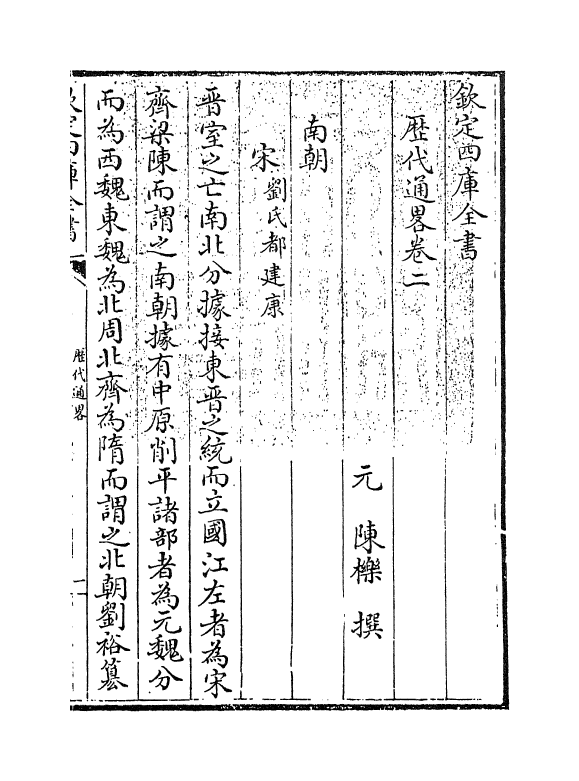 欽定四庫全書
歴代通畧卷二
元　陳櫟　撰
南朝
宋 劉氏都建康
晋室之亡南北分據接東晋之統而立國江左者為宋
齊梁陳而謂之南朝據有中原削平諸部者為元魏分
而為西魏東魏為北周北齊為隋而謂之北朝劉裕篡
欽定四庫全書
歴代通畧
二